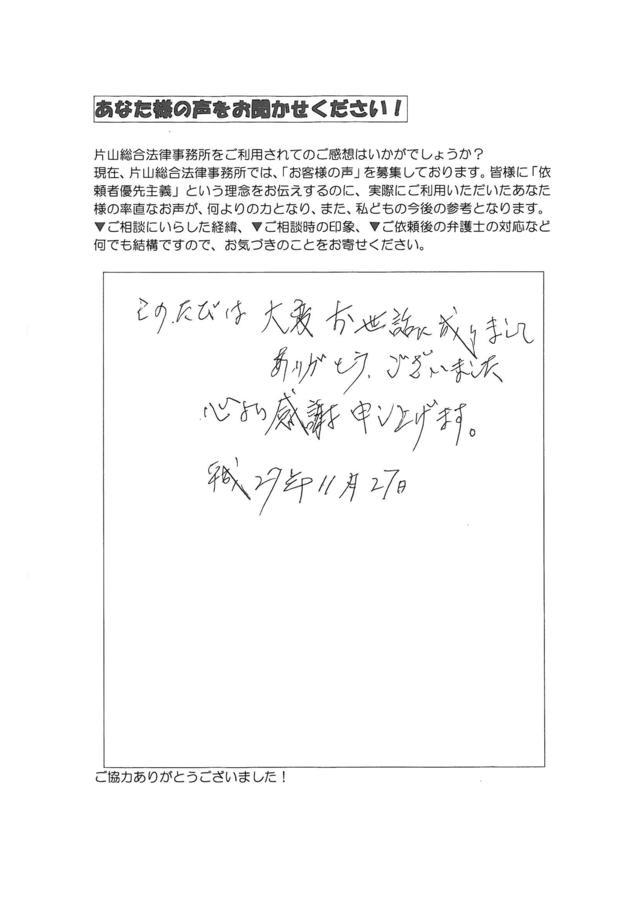 あなた様の声をお聞かせください!
片山総合法律事務所をご利用されてのご感想はいかがでしょうか?
現在、片山総合法律事務所では、「お客様の声」を募集しております。皆様に「依
頼者優先主義」という理念をお伝えするのに、実際にご利用いただいたあなた
様の率直なお声が、何よりの力となり、また、私どもの今後の参考となります。
▼ご相談にいらした経緯、▼ご相談時の印象、▼ご依頼後の弁護士の対応など
何でも結構ですので、お気づきのことをお寄せください。
このたびは 大変 お世話に成りまして
ありがとう、ございました
心より感謝 申し上げます。
平成 27年 11月 27日
ご協力ありがとうございました!